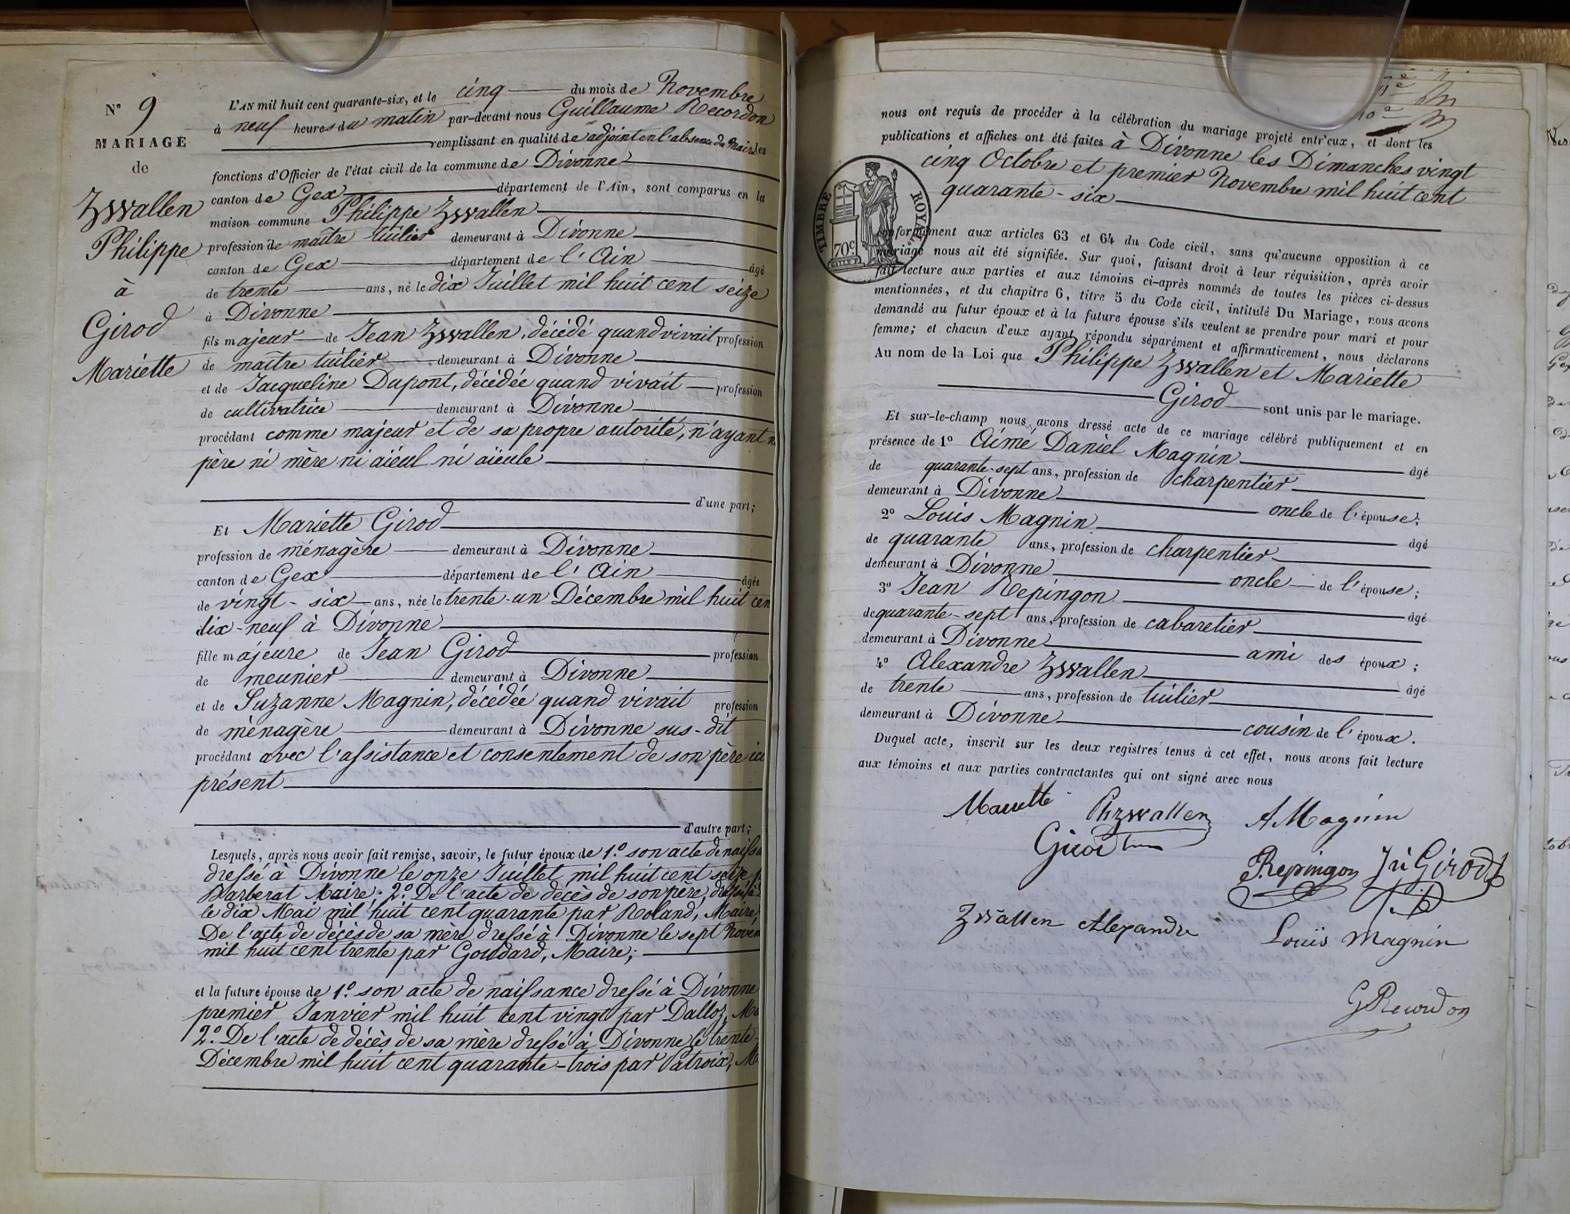 N° 9
MARIAGE
de
Zwallen
Philippe
à
Girod
Mariette
L'AN mil huit cent quarante-six, et le cinq du mois de Novembre
à neuf heures du matin par-devant nous Guillaume Recordon
remplissant en qualité de adjoint en l'absence du Maire les
fonctions d'Officier de l'état civil de la commune de Divonne
canton de Gex département de l'Ain, sont comparus en la
maison commune Philippe Zwallen
profession de maître tuilier demeurant à Divonne
canton de Gex département de l'Ain âgé
de trente ans, né le dix Juillet mil huit cent seize
à Divonne
fils majeur de Jean Zwallen, décédé quand vivait profession
de maître tuilier demeurant à Divonne
et de Jacqueline Dupont, décédée quand vivait profession
de cultivatrice demeurant à Divonne
procédant comme majeur et de sa propre autorité, n'ayant n
père ni mère ni aïeul ni aïeule
d'une part;
Et Mariette Girod
profession de ménagère demeurant à Divonne
canton de Gex département de l'Ain âgée
de vingt-six ans, née le trente-un Décembre mil huit cen
dix-neuf à Divonne
fille majeure de Jean Girod profession
de meunier demeurant à Divonne
et de Suzanne Magnin, décédée quand vivait profession
de ménagère demeurant à Divonne sus-dit
procédant avec l'assistance et consentement de son père ici
présent
d'autre part;
Lesquels, après nous avoir fait remise, savoir, le futur époux de 1.° son acte de naissa
dressé à Divonne le onze Juillet mil huit cent seize p
Barberat Maire; 2.° De l'acte de décès de son père, dressé
le dix Mai mil huit cent quarante par Roland, Maire,
De l'acte de décès de sa mère dressé à Divonne le sept Novem
mil huit cent trente par Goudard, Maire;
et la future épouse de 1.° son acte de naissance dressé à Divonne
premier Janvier mil huit cent vingt par Dalloz, Ma
2.° De l'acte de décès de sa mère dressé à Divonne le trente
Décembre mil huit cent quarante-trois par Patroix, M
nous ont requis de procéder à la célébration du mariage projeté entr'eux, et dont les
publications et affiches ont été faites à Divonne les Dimanches vingt
cinq Octobre et premier Novembre mil huit cent
quarante-six
TIMBRE ROYAL
70c
conformément aux articles 63 et 64 du Code civil, sans qu'aucune opposition à ce
mariage nous ait été signifiée. Sur quoi, faisant droit à leur réquisition, après avoir
fait lecture aux parties et aux témoins ci-après nommés de toutes les pièces ci-dessus
mentionnées, et du chapitre 6, titre 5 du Code civil, intitulé Du Mariage, nous avons
demandé au futur époux et à la future épouse s'ils veulent se prendre pour mari et pour
femme; et chacun d'eux ayant répondu séparément et affirmativement, nous déclarons
Au nom de la Loi que Philippe Zwallen et Mariette
Girod sont unis par le mariage.
Et sur-le-champ nous avons dressé acte de ce mariage célébré publiquement et en
présence de 1° Aimé Daniel Magnin âgé
de quarante-sept ans, profession de charpentier
demeurant à Divonne oncle de l'épouse;
2° Louis Magnin âgé
de quarante ans, profession de charpentier
demeurant à Divonne oncle de l'épouse;
3° Jean Repingon âgé
de quarante-sept ans, profession de cabaretier
demeurant à Divonne ami des époux;
4° Alexandre Zwallen âgé
de trente ans, profession de tuilier
demeurant à Divonne cousin de l'époux.
Duquel acte, inscrit sur les deux registres tenus à cet effet, nous avons fait lecture
aux témoins et aux parties contractantes qui ont signé avec nous
Mariette Phzwallen A Magnin
Girod
Repingon Jn Girod
Zwallen Alexandre Louis Magnin
G Recordon